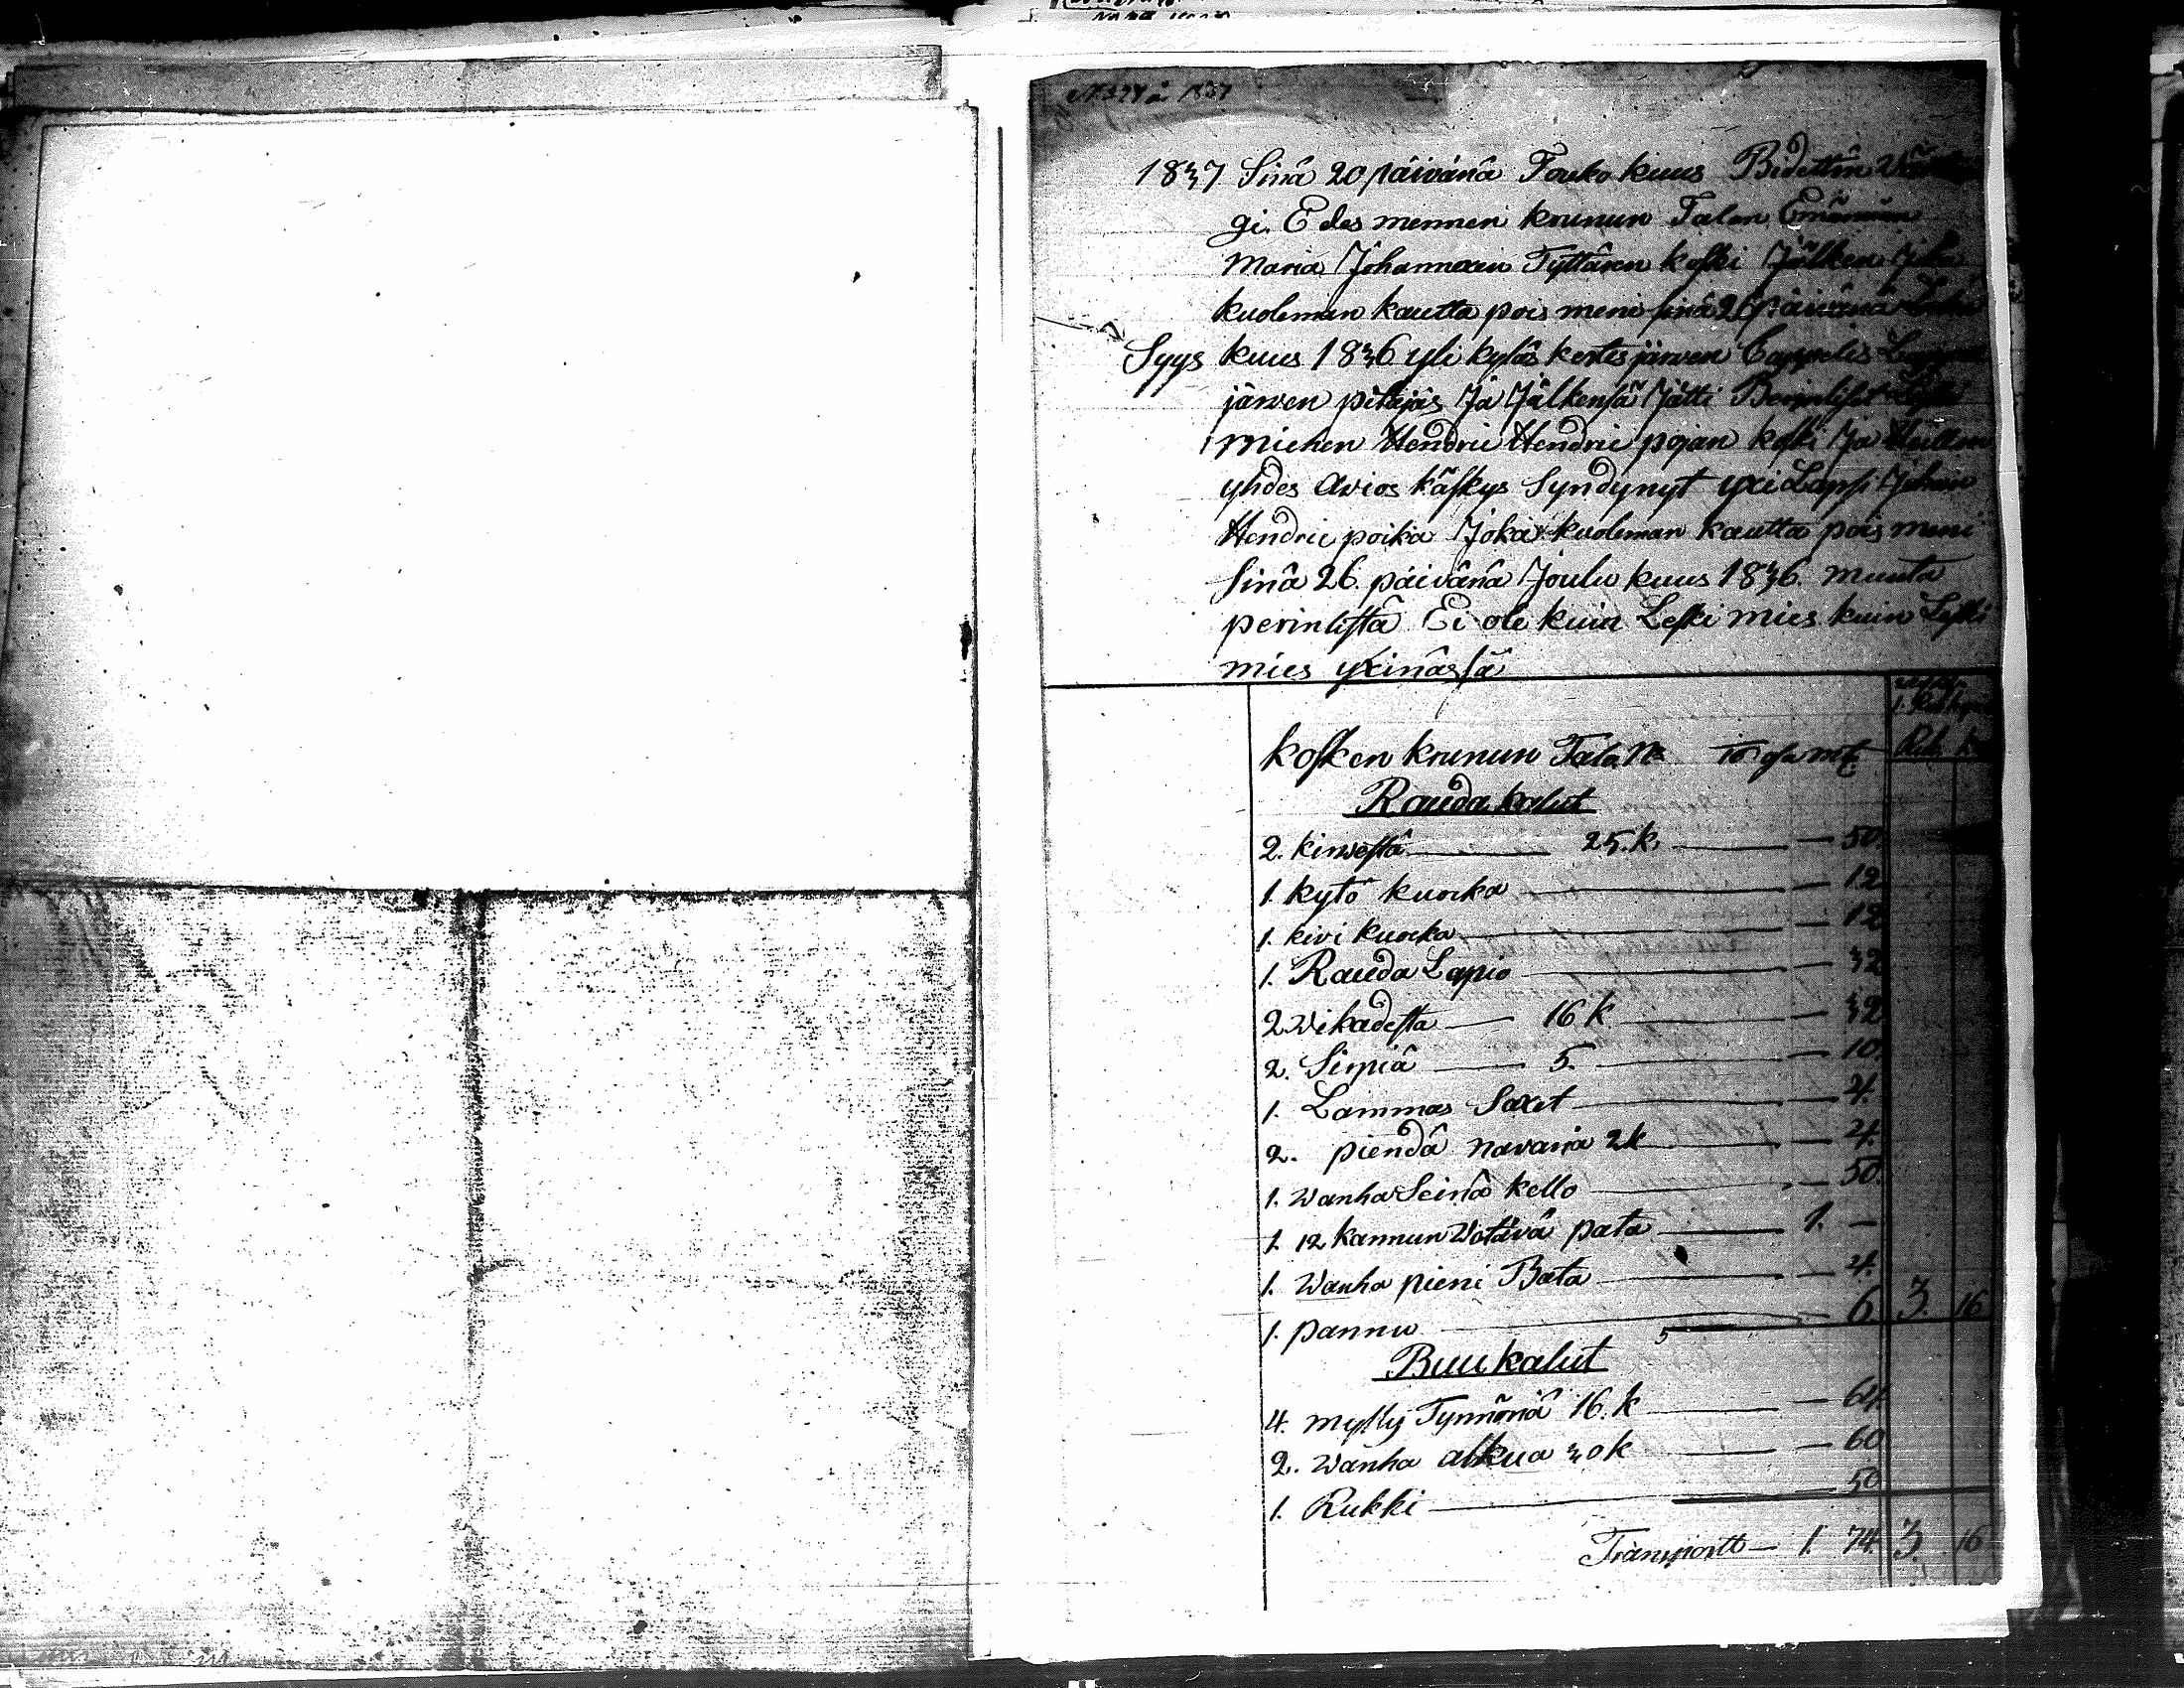 1837
1837 Sinä 20 päivänä Touko kuus Bidettin
gi. Edes mennen krunun Talon Emännän
Maria Johannexen Tyttären koski Jälken Joka
kuoleman kautta pois meni sinä 26 päivänä
Syys kuus 1836 yli kyläs kortesjärven Cappelis
järven pitäjäs Ja Jälkensä Jätti Leski
miehen Hendric Hendric pojan koski Ja
yhdes avios käskys Syndynyt yxi Lapsi Johan
Hendric poika Joka kuoleman kautta pois meni
Sinä 26 päivänä Joulu kuus 1836. muuta
perinlistä Ei ole kuin Leski mies kuin Leski
mies yxinäsä
kosken krunun Talo
Rub.
Rauda kalut
2. kirvestä 25. k. 50.
1. kytö kuocka 12
1. kivi kuocka 12
1. Rauda Lapio 32
2 Wikadesta 16 k 32
2. Sirpiä 5. 10.
1. Lammas Saxet 4.
2. piendä navaria 2k 4.
1. Wanha Seinä kello 50.
1. 12 kannun Wetävä pata 1. —
1. Wanha pieni Bata 4.
1. pannu 6. 3. 16
Buu kalut
4. mylly Tynnöriä 16. k 64.
2. Wanha alkua 30 k 60
1. Rukki 50
Transportt — 1. 74. 3. 16